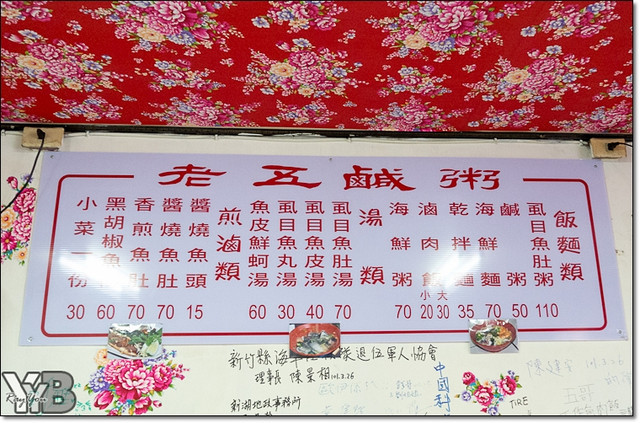 老五鹹粥
飯麵類
虱目魚肚粥 110
鹹粥 50
海鮮麵 70
乾拌麵 35
滷肉飯 小20 大30
海鮮粥 70
湯類
虱目魚肚湯 70
虱目魚皮湯 40
虱目魚丸湯 30
魚皮鮮蚵湯 60
煎滷類
醬燒魚頭 15
醬燒魚肚 70
香煎魚肚 70
黑胡椒魚 60
小菜一份 30
新竹縣海 退伍軍人協會
理事長 陳景
新湖地政事務所
中國科
五哥
TIRE
YB